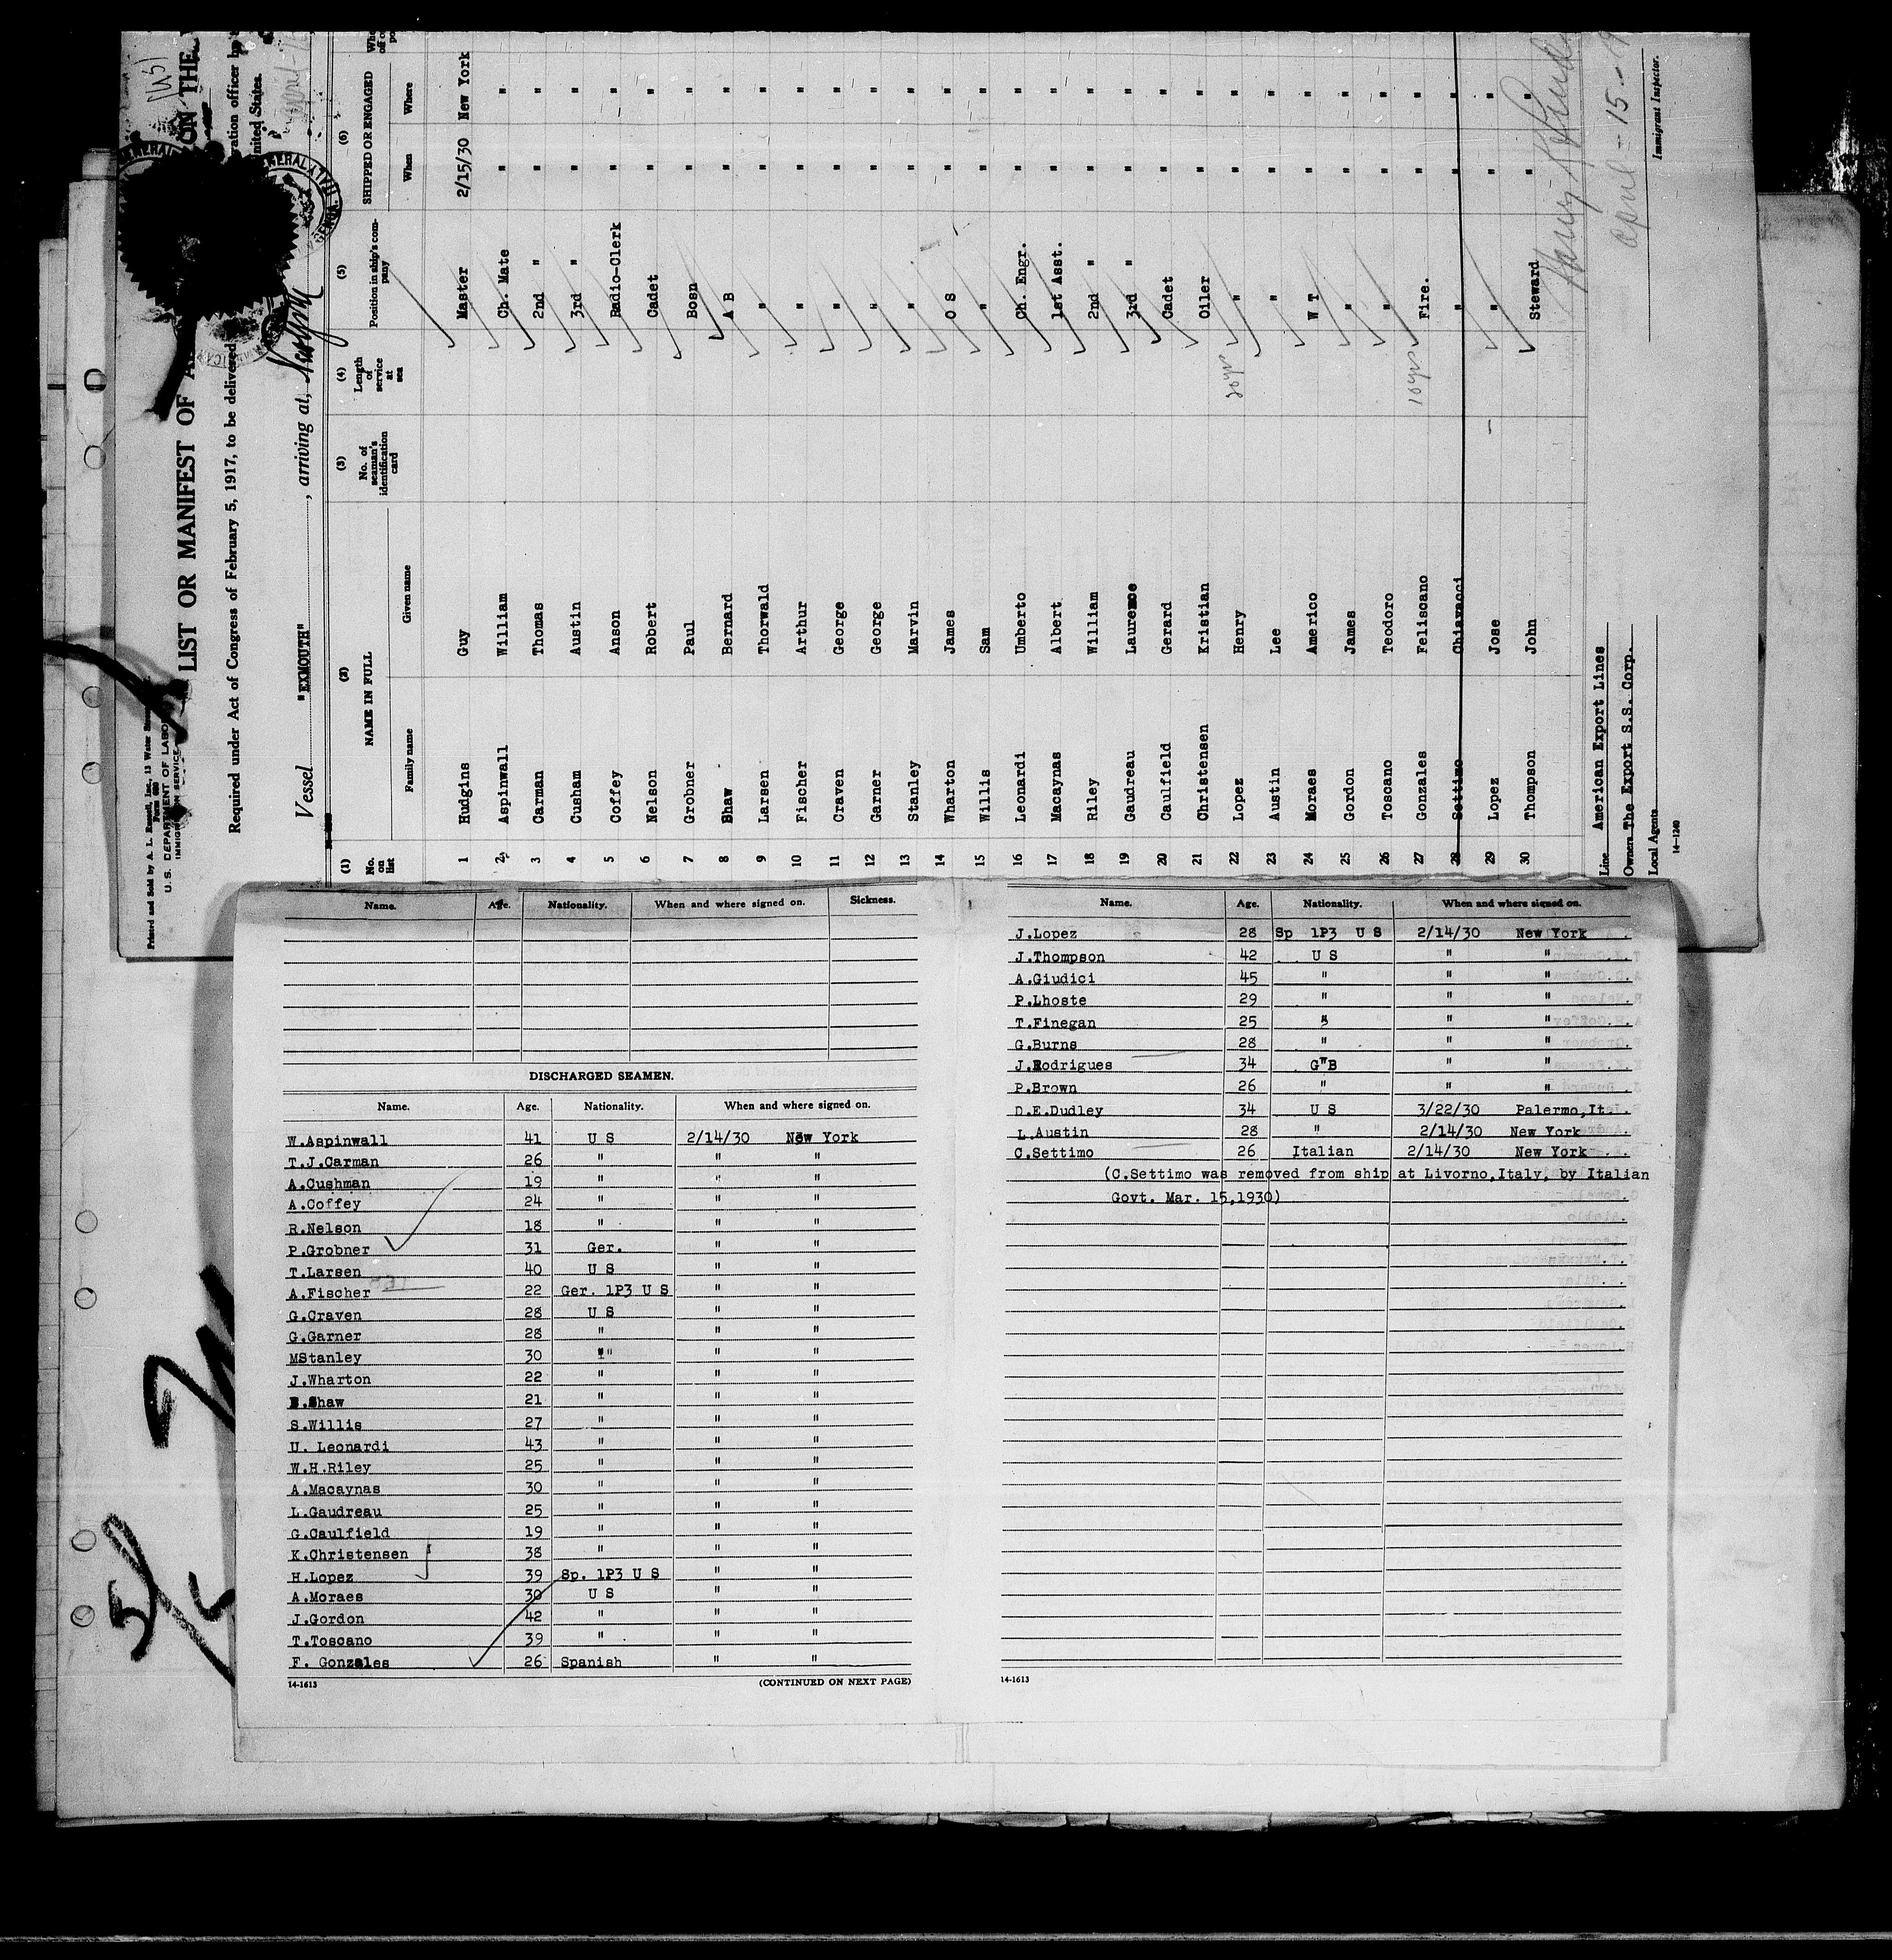 Printed and Sold by A. L. Russell, Inc., 13 Water
Form 680
U. S. DEPARTMENT OF LABOR
IMMIGRATION SERVICE
LIST OR MANIFEST OF ON THE
Required under Act of Congress of February 5, 1917, to be delivered ration officer
nited States.
Vessel "EXMOUTH", arriving at,
(1) (2) (3) (4) (5) (6)
No. on list NAME IN FULL No. of seaman's identification card Length of service at sea Position in ship's company SHIPPED OR ENGAGED
Family name Given name When Where
1 Hudgins Guy Master 2/15/30 New York
2 Aspinwall William Ch. Mate " "
3 Carman Thomas 2nd " " "
4 Cusham Austin 3rd " " "
5 Coffey Anson Radio-Clerk " "
6 Nelson Robert Cadet " "
7 Grobner Paul Bosn " "
8 Shaw Bernard A B " "
9 Larsen Thorwald " " "
10 Fischer Arthur " " "
11 Craven George " " "
12 Garner George " " "
13 Stanley Marvin " " "
14 Wharton James O S " "
15 Willis Sam " " "
16 Leonardi Umberto Ch. Engr. " "
17 Macaynas Albert 1st Asst. " "
18 Riley William 2nd " " "
19 Gaudreau Laurence 3rd " " "
20 Caulfield Gerard Cadet " "
21 Christensen Kristian Oiler " "
22 Lopez Henry 20 yrs " " "
23 Austin Lee " " "
24 Moraes Americo W T " "
25 Gordon James " " "
26 Toscano Teodoro " " "
27 Gonzales Feliscano 10 yrs Fire. " "
28 Settimo Chiavacci " " "
29 Lopez Jose " " "
30 Thompson John Steward " "
Line American Export Lines
Owners The Export S.S. Corp.
Local Agents
14-1240
April - 15 -
Immigrant Inspector.
Name. Age. Nationality. When and where signed on. Sickness.
DISCHARGED SEAMEN.
Name. Age. Nationality. When and where signed on.
W.Aspinwall 41 U S 2/14/30 New York
T.J.Carman 26 " " "
A.Cushman 19 " " "
A.Coffey 24 " " "
R.Nelson 18 " " "
P.Grobner 31 Ger. " "
T.Larsen 40 U S " "
A.Fischer 22 Ger. 1P3 U S " "
G.Craven 28 U S " "
G.Garner 28 " " "
MStanley 30 " " "
J.Wharton 22 " " "
B.Shaw 21 " " "
S.Willis 27 " " "
U. Leonardi 43 " " "
W.H.Riley 25 " " "
A.Macaynas 30 " " "
L.Gaudreau 25 " " "
G.Caulfield 19 " " "
K.Christensen 38 " " "
H.Lopez 39 Sp. 1P3 U S " "
A.Moraes 30 U S " "
J.Gordon 42 " " "
T.Toscano 39 " " "
F. Gonzales 26 Spanish " "
14-1613 (CONTINUED ON NEXT PAGE)
Name. Age. Nationality. When and where signed on.
J.Lopez 28 Sp 1P3 U S 2/14/30 New York
J.Thompson 42 U S " "
A.Giudici 45 " " "
P.Lhoste 29 " " "
T.Finegan 25 " " "
G.Burns 28 " " "
J.Rodrigues 34 G B " "
P.Brown 26 " " "
D.E.Dudley 34 U S 3/22/30 Palermo,It.
L.Austin 28 " 2/14/30 New York
C.Settimo 26 Italian 2/14/30 New York
(C.Settimo was removed from ship at Livorno,Italy, by Italian
Govt. Mar. 15,1930)
14-1613